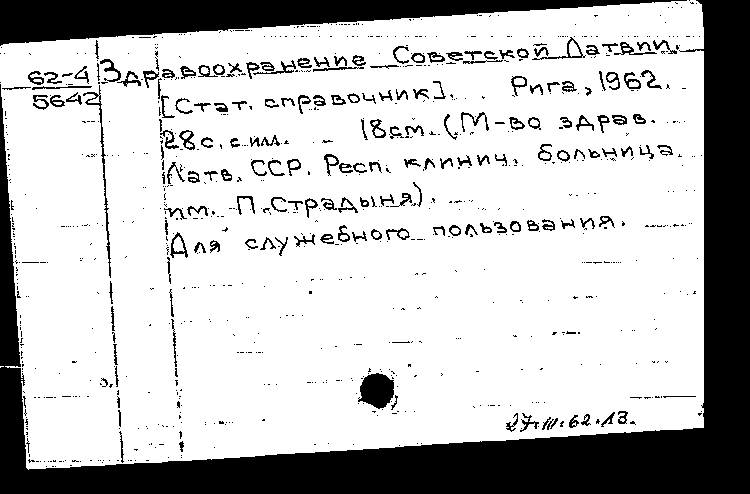 62-4 Здравоохранение Советской Латвии.
5642 [Стат. справочник]. Рига, 1962.
28с. с илл. 18см. (М-во здрав.
Латв. ССР. Респ. клинич. больница
им. П. Страдыня).
Для служебного пользования.
27.III.62.13.